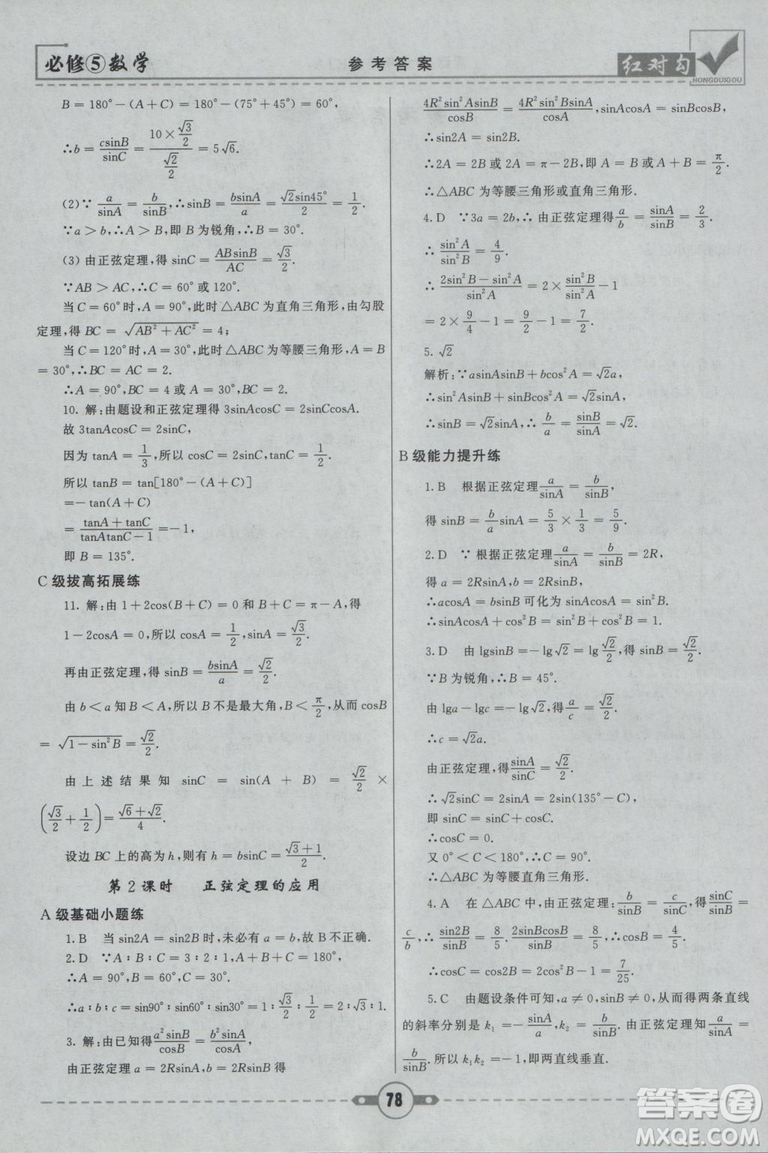 必修⑤数学
参考答案
红对勾
HONGDUIGOU
B=180°-(A+C)=180°-(75°+45°)=60°,
∴b=csinB/sinC=(10×√3/2)/(√2/2)=5√6.
(2)∵a/sinA=b/sinB,∴sinB=bsinA/a=√2sin45°/2=1/2.
∵a>b,∴A>B,即B为锐角,∴B=30°.
(3)由正弦定理,得sinC=ABsinB/AC=√3/2.
∵AB>AC,∴C=60°或120°.
当C=60°时,A=90°,此时△ABC为直角三角形,由勾股
定理,得BC=√(AB²+AC²)=4;
当C=120°时,A=30°,此时△ABC为等腰三角形,A=B
=30°,∴BC=AC=2.
∴A=90°,BC=4或A=30°,BC=2.
10.解:由题设和正弦定理得3sinAcosC=2sinCcosA.
故3tanAcosC=2sinC,
因为tanA=1/3,所以cosC=2sinC,tanC=1/2.
所以tanB=tan[180°-(A+C)]
=-tan(A+C)
=(tanA+tanC)/(tanAtanC-1)=-1,
即B=135°.
C级拔高拓展练
11.解:由1+2cos(B+C)=0和B+C=π-A,得
1-2cosA=0,所以cosA=1/2,sinA=√3/2.
再由正弦定理,得sinB=bsinA/a=√2/2.
由b<a知B<A,所以B不是最大角,B<π/2,从而cosB
=√(1-sin²B)=√2/2.
由上述结果知sinC=sin(A+B)=√2/2×
(√3/2+1/2)=(√6+√2)/4.
设边BC上的高为h,则有h=bsinC=(√3+1)/2.
第2课时 正弦定理的应用
A级基础小题练
1.B 当sin2A=sin2B时,未必有a=b,故B不正确.
2.D ∵A∶B∶C=3∶2∶1,A+B+C=180°,
∴A=90°,B=60°,C=30°,
∴a∶b∶c=sin90°∶sin60°∶sin30°=2∶√3∶1.
3.解:由已知得a²sinB/cosB=b²sinA/cosA,
由正弦定理a=2RsinA,b=2RsinB得
4R²sin²AsinB/cosB=4R²sin²BsinA/cosA,sinAcosA=sinBcosB,
∴sin2A=sin2B.
∴2A=2B或2A+2B=π,即A=B或A+B=π/2.
∴△ABC为等腰三角形或直角三角形.
4.D ∵3a=2b,∴由正弦定理得a/b=sinA/sinB=2/3.
∴sin²A/sin²B=4/9.
∴(2sin²B-sin²A)/sin²A=2×sin²B/sin²A-1
=2×9/4-1=9/2-1=7/2.
5.√2
解析:∵asinAsinB+bcos²A=√2a,
∴sin²AsinB+sinBcos²A=√2sinA,
∴sinB=√2sinA,∴b/a=sinB/sinA=√2.
B级能力提升练
1.B 根据正弦定理a/sinA=b/sinB,
得sinB=b/a sinA=5/3×1/3=5/9.
2.D ∵根据正弦定理a/sinA=b/sinB=2R,
得a=2RsinA,b=2RsinB,
∴acosA=bsinB可化为sinAcosA=sin²B.
∴sinAcosA+cos²B=sin²B+cos²B=1.
3.D 由lgsinB=-lg√2=lg√2/2,得sinB=√2/2.
∵B为锐角,∴B=45°.
由lga-lgc=-lg√2,得a/c=√2/2.
∴c=√2a.
由正弦定理,得sinC=√2sinA.
∴√2sinC=2sinA=2sin(135°-C),
即sinC=sinC+cosC.
∴cosC=0.
又0°<C<180°,∴C=90°.
∴△ABC是等腰直角三角形.
4.A 在△ABC中,由正弦定理,b/sinB=c/sinC,得sinC/sinB=
c/b,∴sin2B/sinB=8/5.2sinBcosB/sinB=8/5,cosB=4/5,
∴cosC=cos2B=2cos²B-1=2×(4/5)²-1=7/25.
5.C 由题设条件可知,a≠0,sinB≠0,从而得两条直线
的斜率分别是k₁=-sinA/a,k₂=b/sinB.由正弦定理a/sinA=
b/sinB.所以k₁k₂=-1,即两直线垂直.
78
答案圈
MXQE.COM